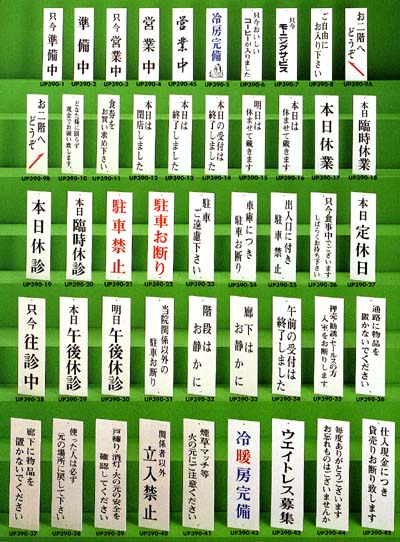 只今準備中
UP390-1
準備中
UP390-2
只今営業中
UP390-3
営業中
UP390-4
営業中
UP390-4S
冷房完備
UP390-5
只今おいしい
コーヒーが入りました
UP390-6
只今
モーニングサービス
UP390-7
ご自由に
お入り下さい
UP390-8
お二階へ
どうぞ
UP390-9A
お二階へ
どうぞ
UP390-9B
どなた様に限らず
現金でお願い致します。
UP390-10
食券を
お買い求め下さい
UP390-11
本日は
閉店しました
UP390-12
本日は
終了しました
UP390-13
本日の受付は
終了しました
UP390-14
明日は
休ませて戴きます
UP390-15
本日は
休ませて戴きます
UP390-16
本日休業
UP390-17
本日臨時休業
UP390-18
本日休診
UP390-19
本日臨時休診
UP390-20
駐車禁止
UP390-21
駐車お断り
UP390-22
駐車
ご遠慮下さい
UP390-23
車庫につき
駐車お断り
UP390-24
出入口に付き
駐車禁止
UP390-25
只今食事中でございます
しばらくお待ち下さい
UP390-26
本日定休日
UP390-27
只今往診中
UP390-28
本日午後休診
UP390-29
明日午後休診
UP390-30
当院関係以外の
駐車お断り
UP390-31
階段は
お静かに
UP390-32
廊下は
お静かに
UP390-33
午前の受付は
終了しました
UP390-34
押売・勧誘・セールスの方
入室をお断りします
UP390-35
通路に物品を
置かないでください。
UP390-36
廊下に物品を
置かないでください。
UP390-37
使った人は必ず
元の場所に戻して下さい
UP390-38
戸締り・消灯・火の元の安全を
確認してください
UP390-39
関係者以外
立入禁止
UP390-40
煙草・マッチ等
火の元にご注意ください
UP390-41
冷暖房完備
UP390-42
ウエイトレス募集
UP390-43
毎度ありがとうございます
お忘れものはございませんか
UP390-44
仕入現金につき
貸売りお断り致します
UP390-45